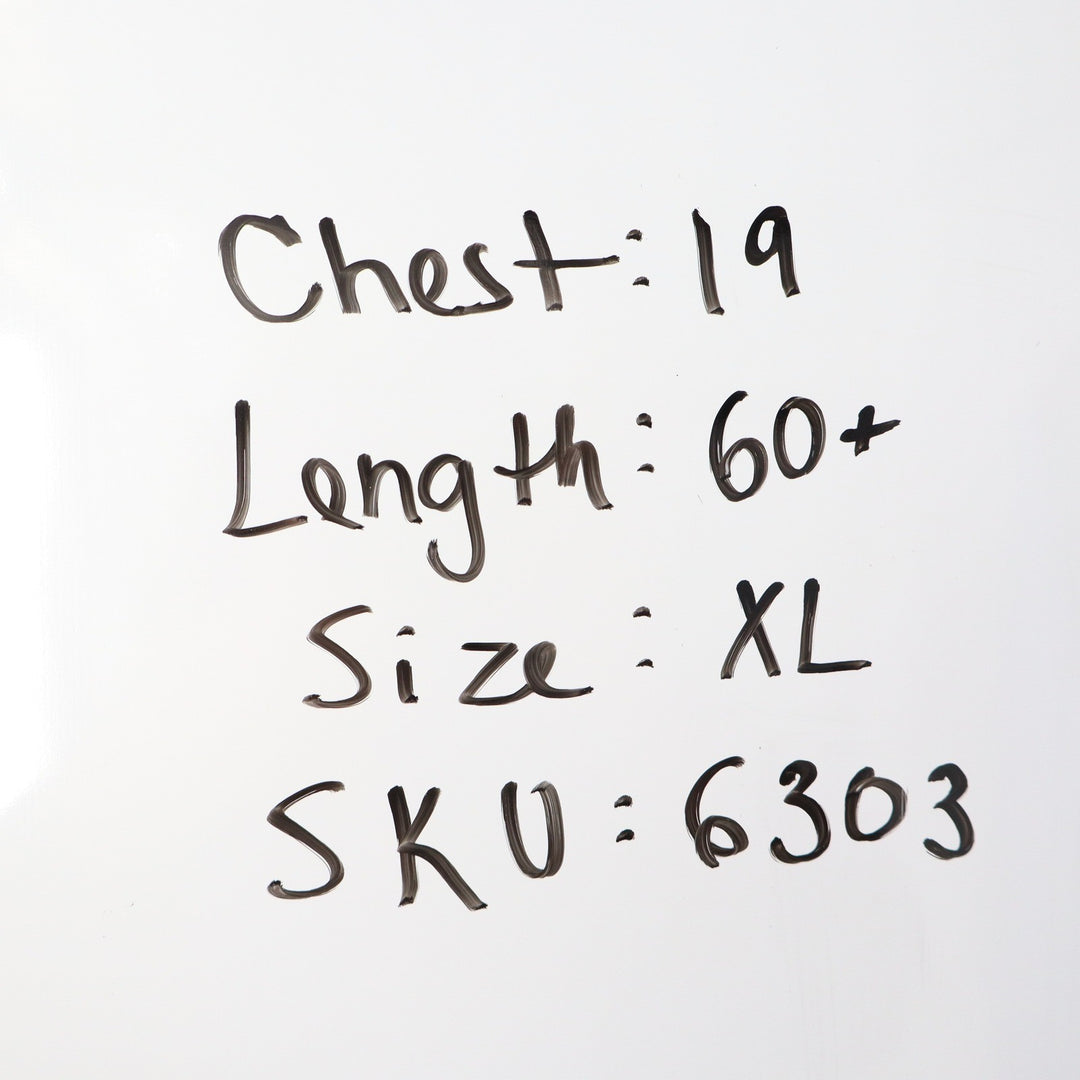 Chest: 19
Length: 60+
Size: XL
SKU: 6303